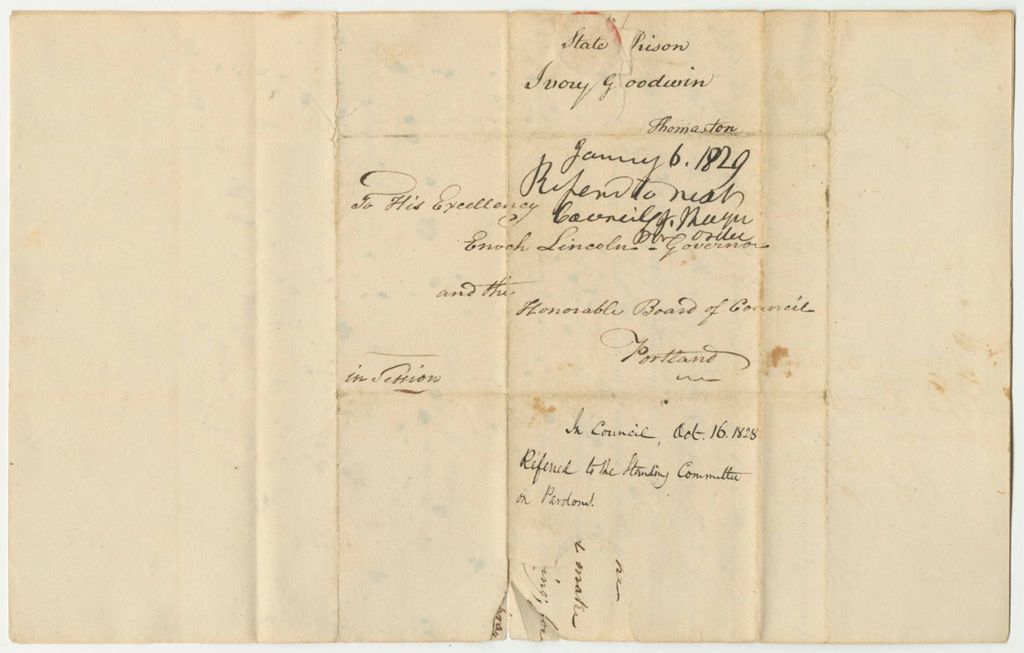 State Prison
Ivory Goodwin
Thomaston
Janury 6. 1829
Referd to next
Council
Per order
To His Excellency
Enoch Lincoln - Governor
and the
Honorable Board of Council
Portland
in Session
In Council, Oct. 16. 1828
Referred to the Standing Committee
on Pardons.
& make
ing, for